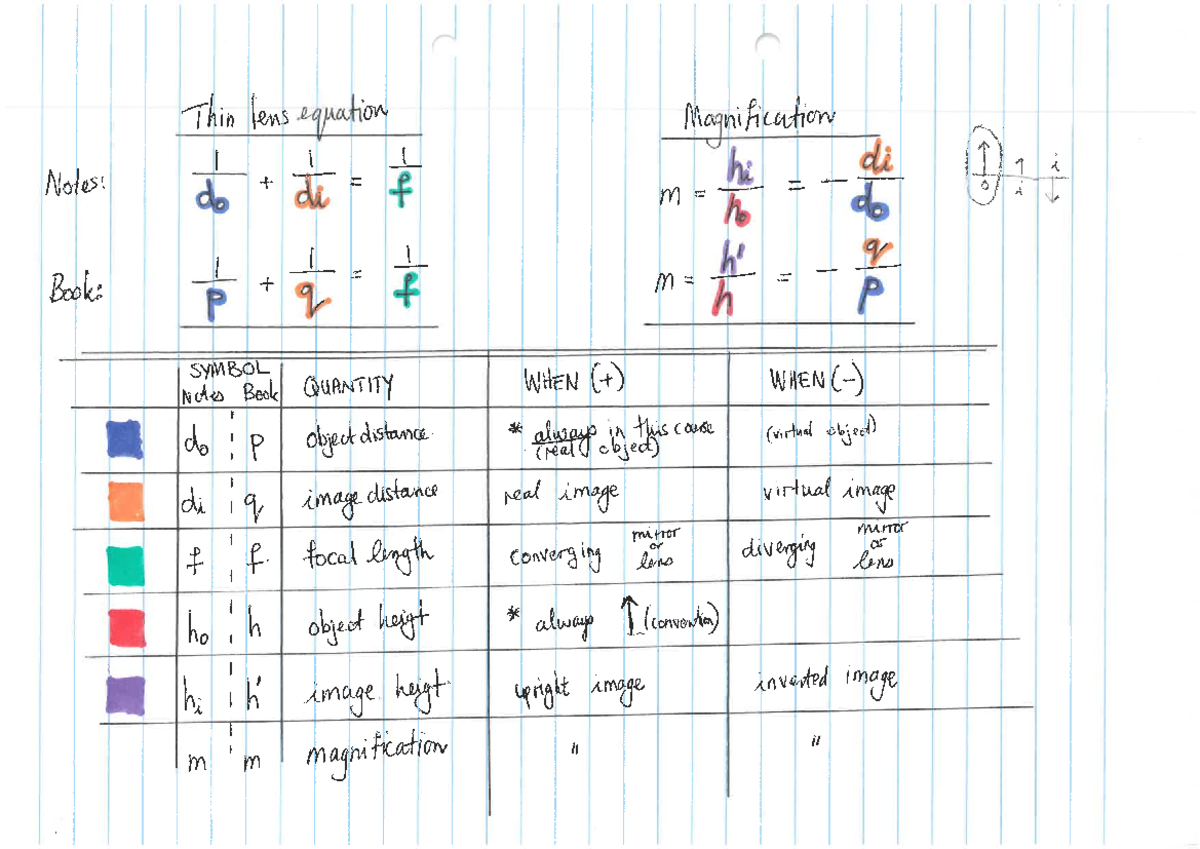 Thin lens equation
Magnification
Notes: 1/do + 1/di = 1/f
m = hi/ho = - di/do
o i i
Book: 1/p + 1/q = 1/f
m = h'/h = - q/p
SYMBOL
Notes Book QUANTITY WHEN (+) WHEN (-)
do p object distance * always in this course (virtual object)
(real object)
di q image distance real image virtual image
f f focal length converging mirror or lens diverging mirror or lens
ho h object heigt * always ↑ (convention)
hi h' image heigt upright image inverted image
m m magnification " "